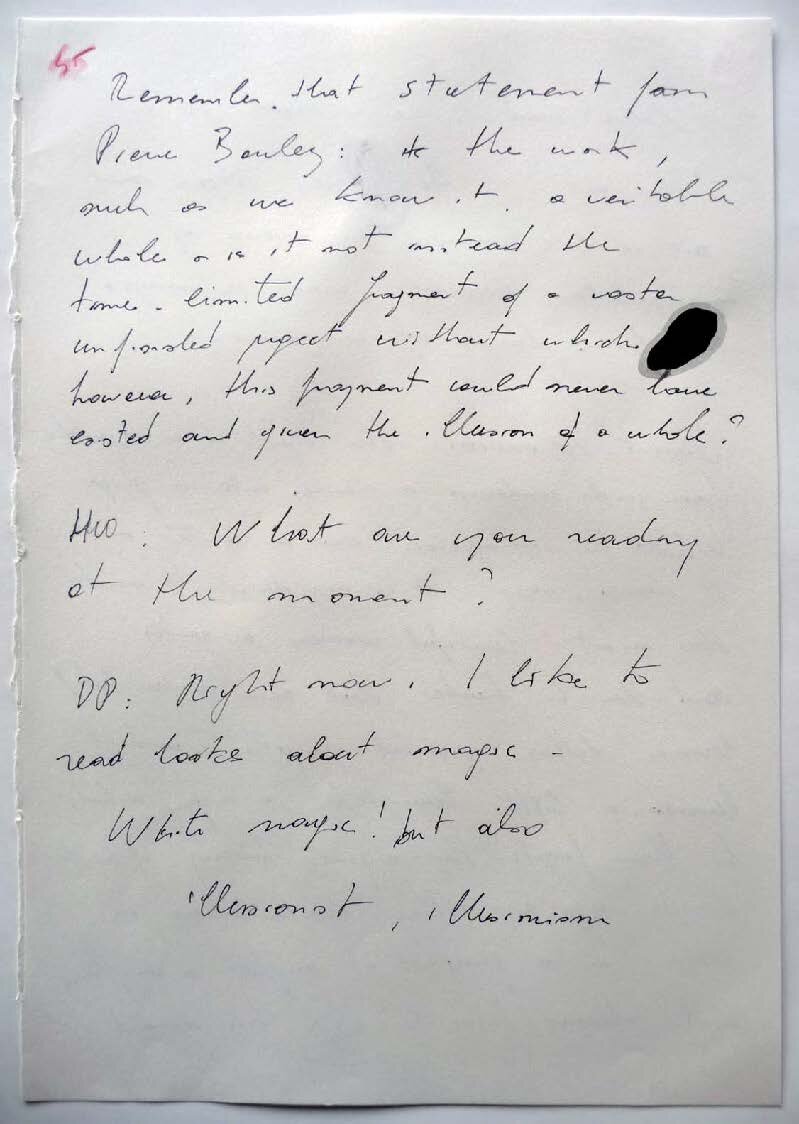 45
Remember that statement from
Pierre Boulez: Is the work,
such as we know it, a veritable
whole or is it not instead the
time-limited fragment of a vaster
unfinished project without which
however, this fragment could never have
existed and given the illusion of a whole?
HUO: What are you reading
at the moment?
DP: Right now, I like to
read books about magic -
White magic! but also
illusionist, illusionism